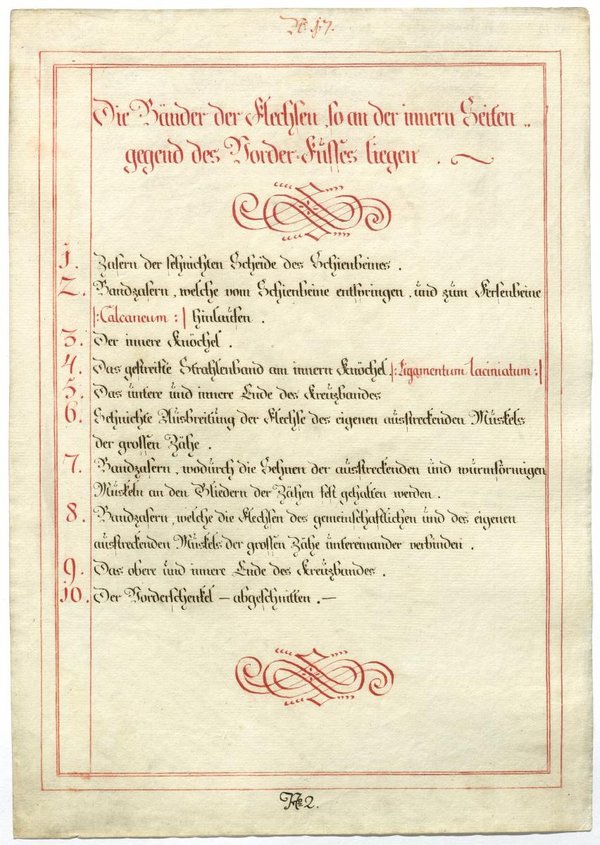 N. 17.
Die Bänder der Flechsen, so an der innern Seiten„
gegend des Vorder-Füsses liegen.
1. Zasern der sehnichten Scheide des Schienbeines.
2. Bandzasern, welche vom Schienbeine entspringen, und zum Fersenbeine
|: Calcaneum :| hinlaufen.
3. Der innere Knöchel.
4. Das gestreifte Strahlenband am innern Knöchel |: Ligamentum laciniatum :|
5. Das untere und innere Ende des Kreuzbandes
6. Sehnichte Ausbreitung der Flechse des eigenen ausstreckenden Muskels
der grossen Zähe.
7. Bandzasern, wodurch die Sehnen der ausstreckenden und wurmförmigen
Muskeln an den Gliedern der Zähen fest gehalten werden.
8. Bandzasern, welche die Flechsen des gemeinschaftlichen und des eigenen
ausstreckenden Muskels der grossen Zähe untereinander verbinden.
9. Das obere und innere Ende des Kreuzbandes.
10. Der Vorderschenkel – abgeschnitten. –
No 2.